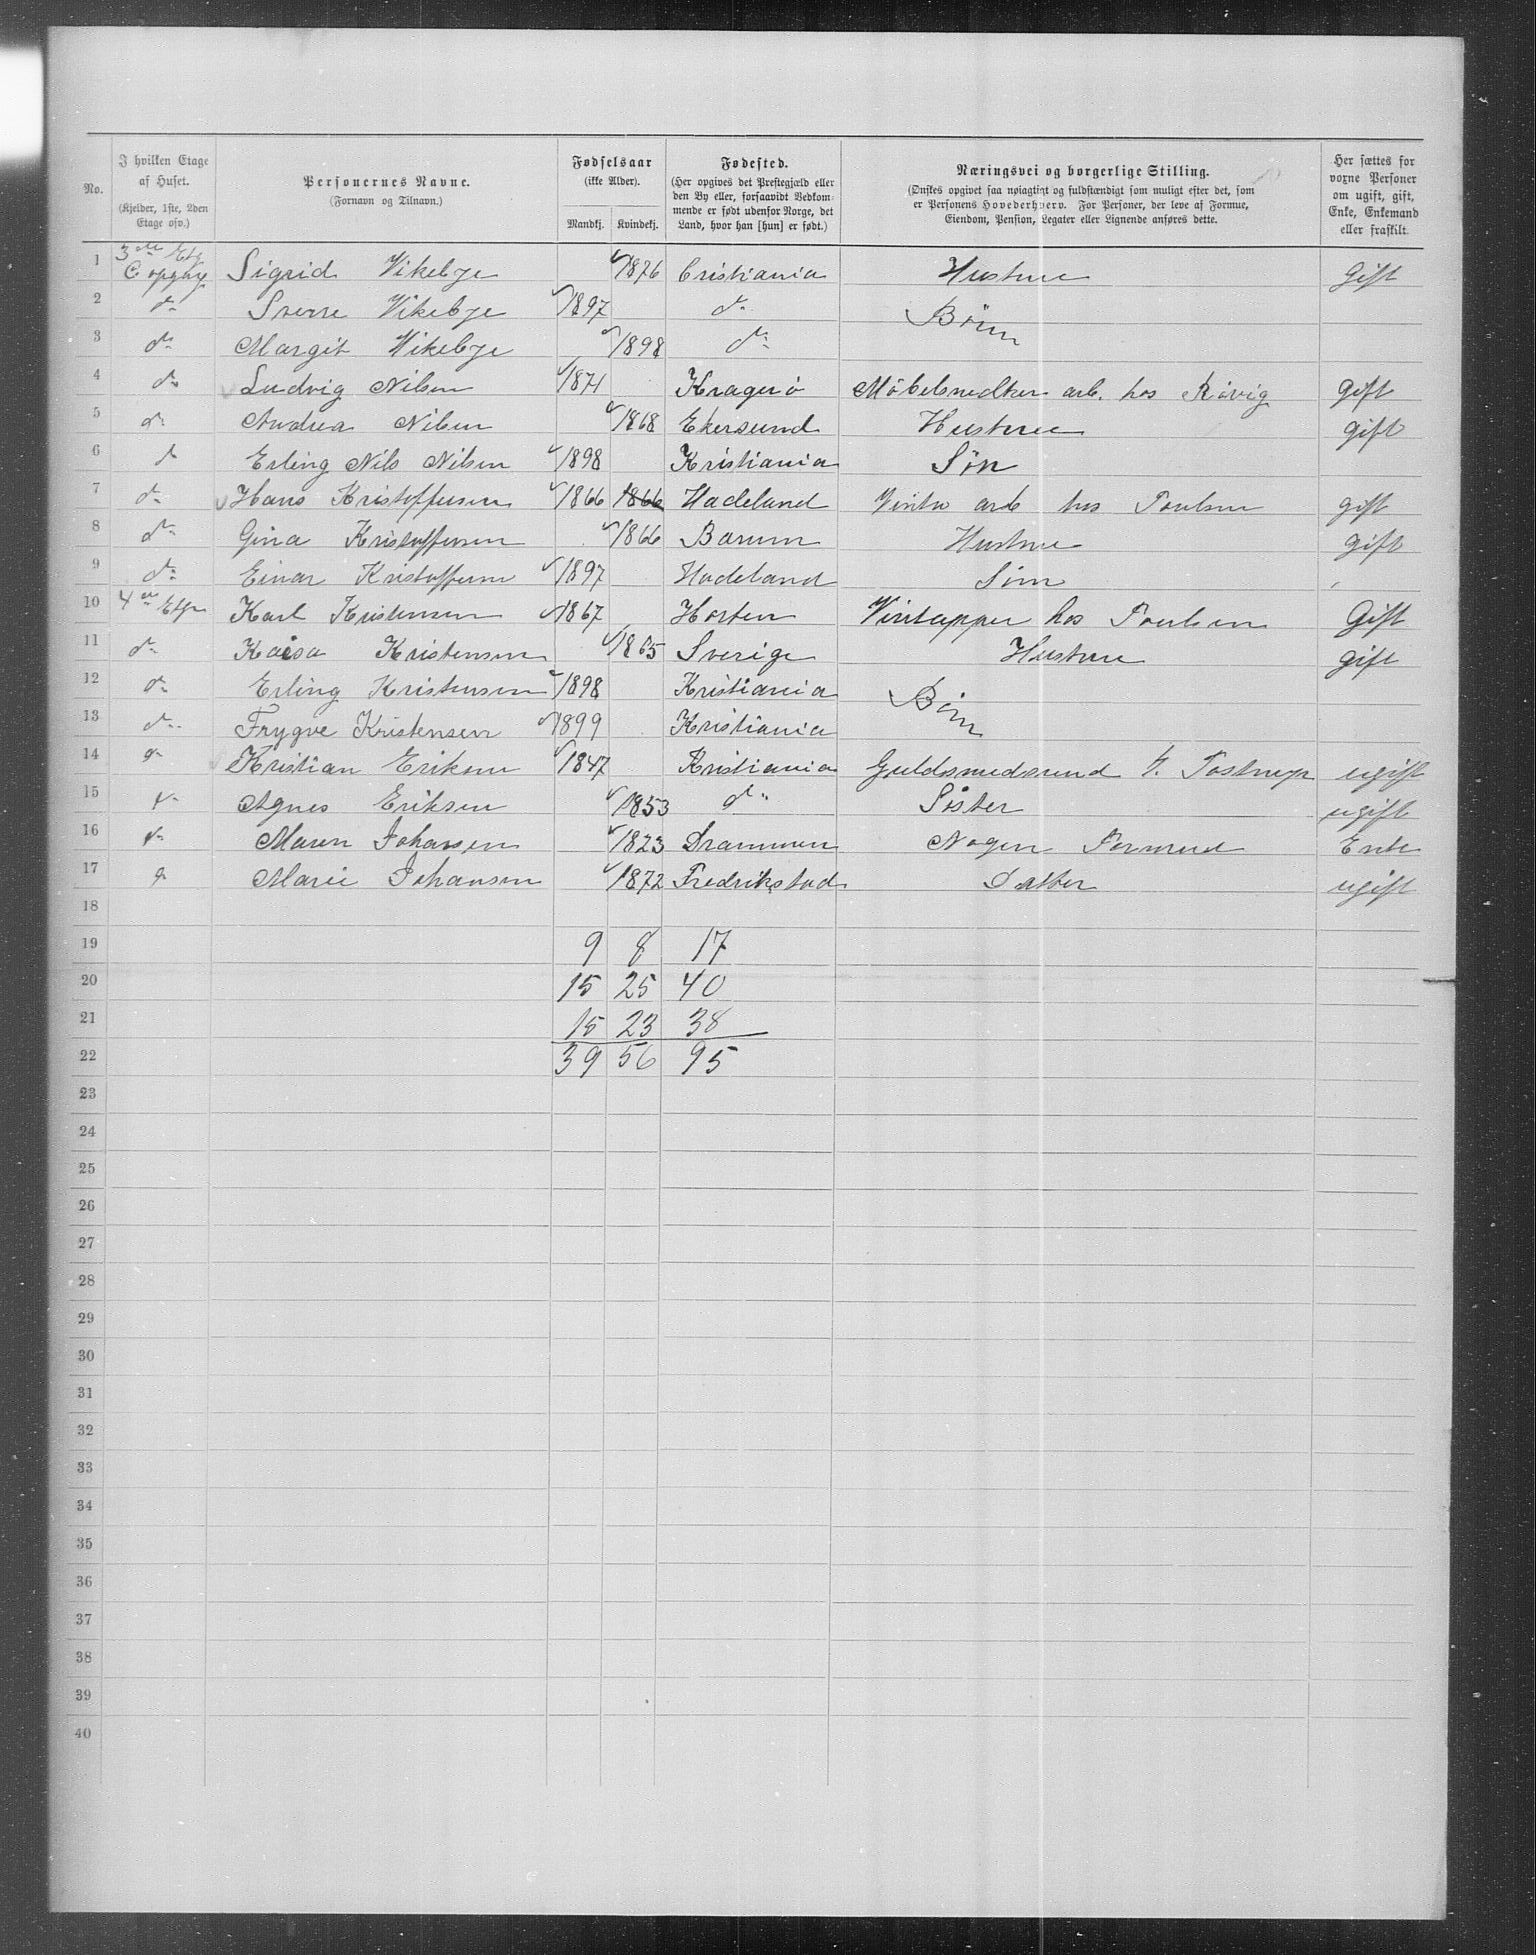 No. I hvilken Etage af Huset. (Kjelder, 1ste, 2den Etage osv.) Personernes Navne. (Fornavn og Tilnavn.) Fødselsaar (ikke Alder). Mandkj. Kvindekj. Fødested. (Her opgives det Prestegjæld eller den By eller, forsaavidt Vedkommende er født udenfor Norge, det Land, hvor han [hun] er født.) Næringsvei og borgerlige Stilling. (Ønskes opgivet saa nøiagtigt og fuldstændigt som muligt efter det, som er Personens Hovederhverv. For Personer, der leve af Formue, Eiendom, Pension, Legater eller Lignende anføres dette. Her sættes for voxne Personer om ugift, gift, Enke, Enkemand eller fraskilt.
1 3die Etg C opgng Sigrid Vikebye 1876 Cristiania Hustrue Gift
2 do Sverre Vikebye 1897 do Børn
3 do Margit Vikebye 1898 do
4 do Ludvig Nilsen 1871 Kragerø Møbelsnedker arb. hos Røvig gift
5 do Andrea Nilsen 1868 Ekersund Hustrue gift
6 do Erling Nils Nilsen 1898 Kristiania Søn
7 do Hans Kristoffersen 1866 1866 Hadeland arb hos Poulsen gift
8 do Gina Kristoffersen 1866 Barum Hustrue gift
9 do Einar Kristoffersen 1897 Hadeland Søn
10 4de Etge Karl Kristensen 1867 Horten Vintapper hos Poulsen Gift
11 do Kaisa Kristensen 1865 Sverige Hustrue gift
12 do Erling Kristensen 1898 Kristiania Børn
13 do Trygve Kristensen 1899 Kristiania
14 do Kristian Eriksen 1847 Kristiania Guldsmedsvend Tostrup ugift
15 do Agnes Eriksen 1853 do Søster ugift
16 do Maren Johansen 1823 Drammen Nogen Formue Enke
17 do Marie Johansen 1872 Fredrikstad Datter ugift
18
19 9 8 17
20 15 25 40
21 15 23 38
22 39 56 95
23
24
25
26
27
28
29
30
31
32
33
34
35
36
37
38
39
40